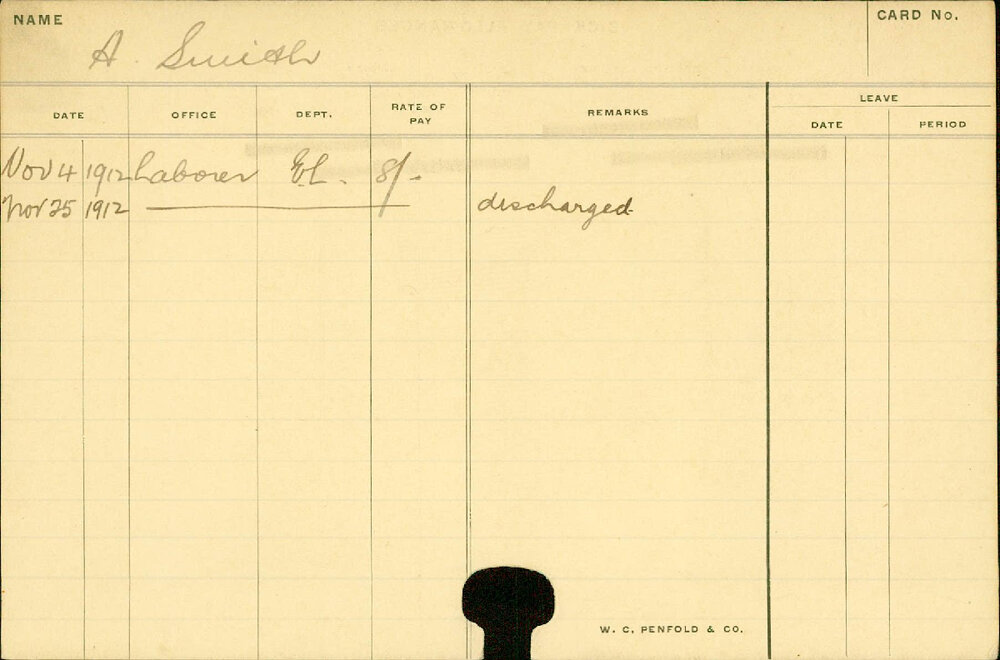 NAME
CARD No.
A. Smith
DATE OFFICE DEPT. RATE OF PAY REMARKS LEAVE
DATE PERIOD
Nov 4 1912 Laborer E.L. 8/-
Nov 25 1912 discharged
W. C. PENFOLD & CO.